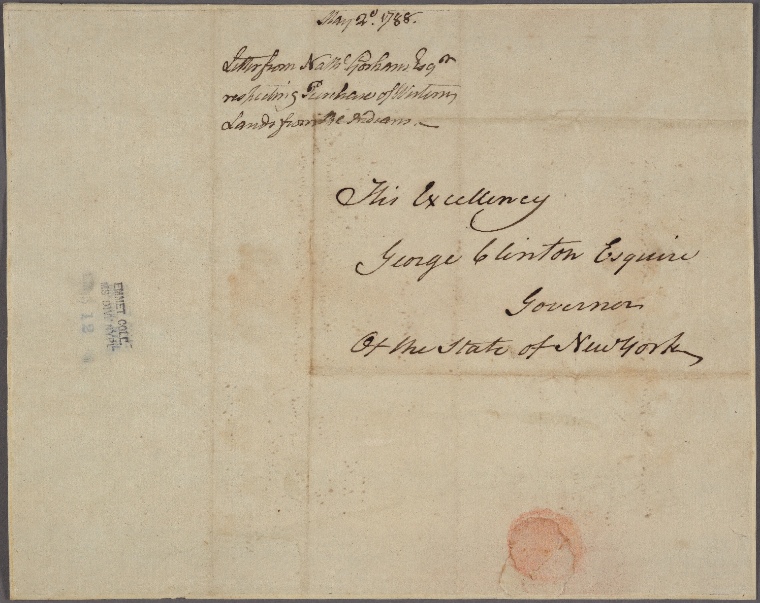 May 2d. 1788.
Letter from Nathl Gorham Esqr
respecting Purchase of Western
Lands from the Indians.
His Excellency
George Clinton Esquire
Governor
Of the State of New York
EMMET COLL.